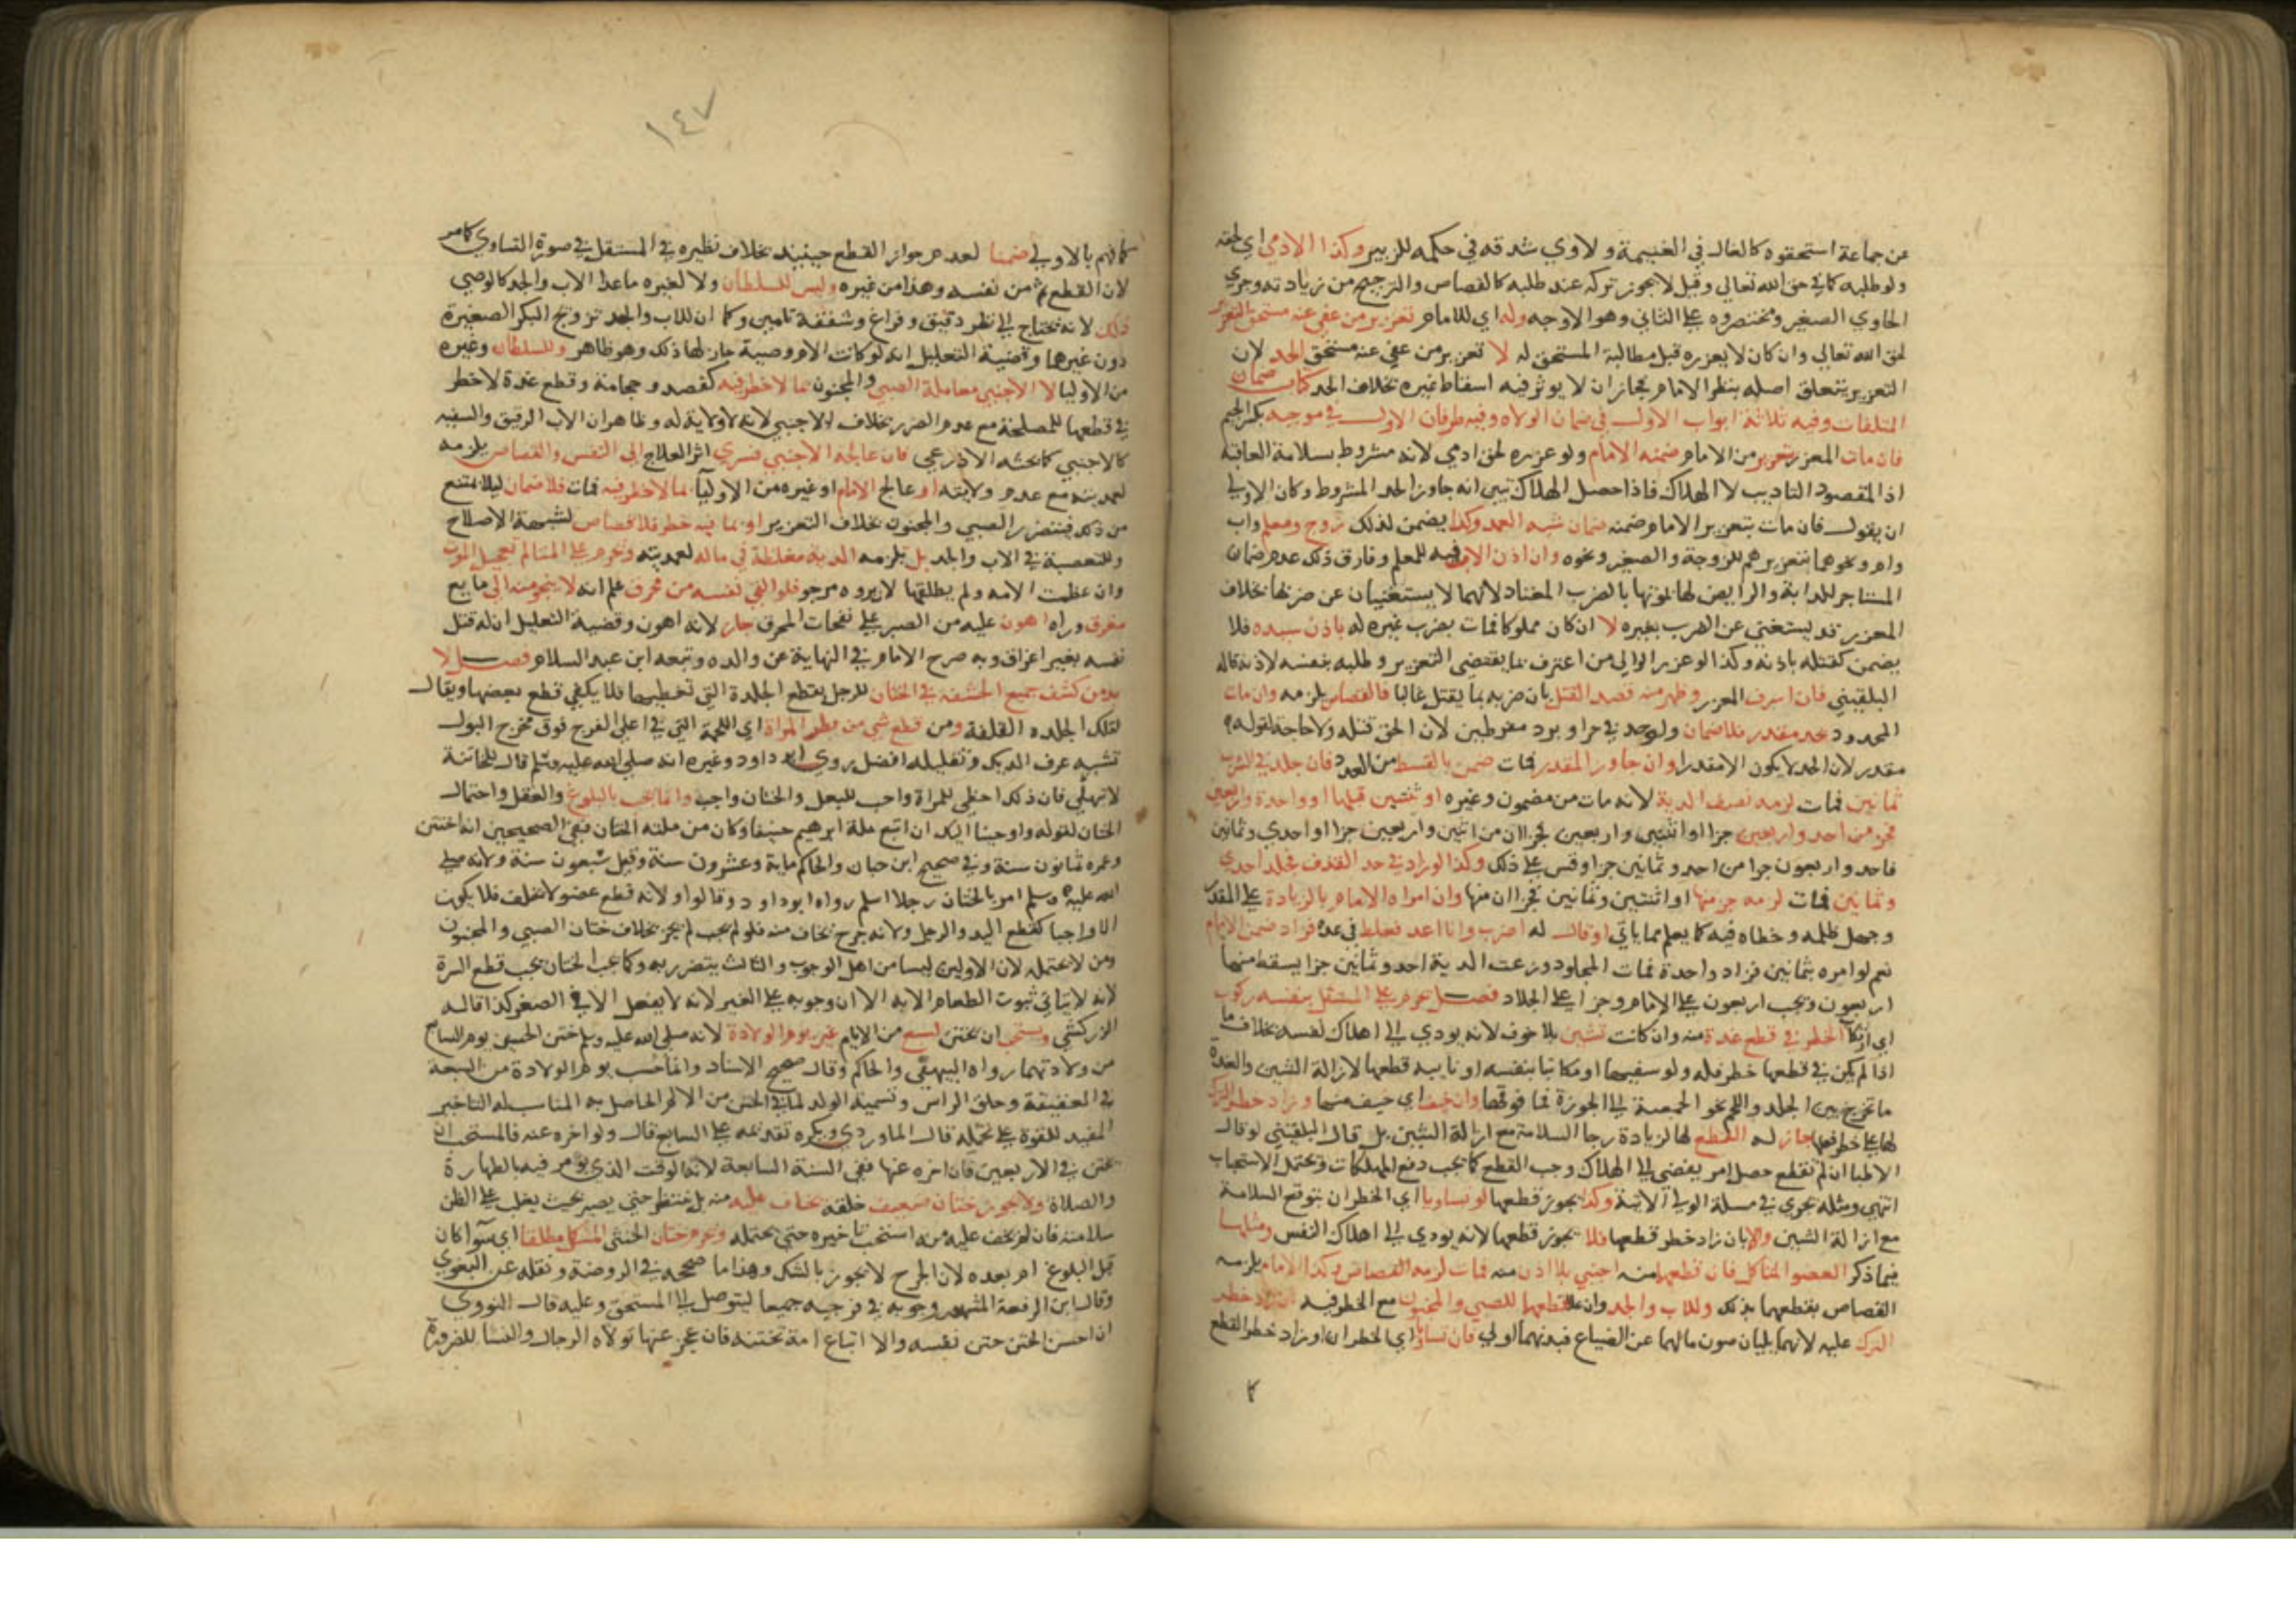 من جماعة استحقوه كالغال في الغنيمة ولاوي شدقه في حكمه للزبير وكذا الادمي اي لحقه
ولو طلبه كما في حق الله تعالي وقيل لا يجوز تركه عند طلبه كالقصاص والترجيح من زيادته وجري
الحاوي الصغير ومختصروه علي الثاني وهو الاوجه وله اي للامام تعزير من عفي عنه مستحق التعزير
لحق الله تعالي وان كان لا يعزره قبل مطالبة المستحق له لا تعزير من عفي عنه مستحق الحد لان
التعزير يتعلق اصله بنظر الامام فجاز ان لا يوثر فيه اسقاط غيره بخلاف الحد كتاب ضمان
المتلفات وفيه ثلاثة ابواب الاول في ضمان الولاه وفيه طرفان الاول في موجبه بكسر الجيم
فان مات المعزر بتعزير من الامام ضمنه الامام ولو عزره لحق ادمي لانه مشروط بسلامة العاقبة
اذ المقصود التاديب لا الهلاك فاذا حصل الهلاك تبين انه جاوز الحد المشروط وكان الاولي
ان يقول فان مات بتعزير الامام ضمنه ضمان شبه العمد وكذا يضمن لذلك زوج ومعلم واب
وام ونحوهما بتعزيرهم للزوجة والصغير ونحوه وان اذن الاب فيه للمعلم وفارق ذلك عدم ضمان
المستاجر للدابة والرايض لها لموتها بالضرب المعتاد لانهما لا يستغنيان عن ضربها بخلاف
المعزر قد يستغني عن الضرب بغيره لا ان كان مملوكا فمات بضرب غيره له باذن سيده فلا
يضمن كقتله باذنه وكذا لو عزر الوالي من اعترف بما يقتضي التعزير وطلبه بنفسه لاذنه قاله
البلقيني فان اسرف المعزر وظهر منه قصد القتل بان ضربه بما يقتل غالبا فالقصاص يلزمه وان مات
المحدود بحد مقدر فلا ضمان ولو حد في حر او برد مفرطين لان الحق قتله ولا حاجة لقوله
مقدر لان الحد لا يكون الا مقدرا وان جاوز المقدر فمات ضمن بالقسط من العدد فان جلد في الشرب
ثمانين فمات لزمه نصف الدية لانه مات من مضمون وغيره او ثنتين قبلها او واحدة واربعين
فجزء من احد واربعين جزا او اثنتين واربعين فجزاان من اثنين واربعين جزا او احدي وثمانين
فاحد واربعون جزا من احد وثمانين جزا وقس علي ذلك وكذا لو زاد في حد القذف فجلد احدي
وثمانين فمات لزمه جزء منها او اثنتين وثمانين فجزاان منها وان امره الامام بالزيادة علي المقدر
وجهل ظلمه وخطاه فيه كما يعلم مما ياتي او قال له اضرب وانا اعد فغلط في عده فزاد ضمن الامام
نعم لو امره بثمانين فزاد واحدة فمات المجلود وزعت الدية احد وثمانين جزا يسقط منها
اربعون ويجب اربعون علي الامام وجزا علي الجلاد فصل يحرم علي المستقل بنفسه ركوب
اي ارتكاب الخطر في قطع غدة منه وان كانت تشين بلا خوف لانه يودي الي اهلاك نفسه بخلاف ما
اذا لم يكن في قطعها خطر فله ولو سفيها او مكاتبا بنفسه او نايبه قطعها لازالة الشين والغدة
ما تخرج بين الجلد واللحم نحو الحمصة الي الجوزة فما فوقها وان خيف اي خيف منها وزاد خطر الترك
لها علي خطر قطعها جاز له القطع لها لزيادة رجا السلامة مع ازالة الشين بل قال البلقيني لو قال
الاطبا ان لم تقطع حصل امر يفضي الي الهلاك وجب القطع كما يجب دفع المهلكات ويحتمل الاستحباب
انتهي ومثله يجري في مسلة الولي الاتية وكذا يجوز قطعها لو تساويا اي الخطران بتوقع السلامة
مع ازالة الشين والا بان زاد خطر قطعها فلا يجوز قطعها لانه يودي الي اهلاك النفس ومثلها
فيما ذكر العضو المتاكل فان قطعها منه اجنبي بلا اذن منه فمات لزمه القصاص وكذا الامام يلزمه
القصاص بقطعهما بذلك وللاب والجد وان علا قطعها للصبي والمجنون مع الخطر فيه ان زاد خطر
الترك عليه لانهما يليان صون مالهما عن الضياع فبدنهما اولي فان تساويا اي الخطران او زاد خطر القطع
كما
١٤٧
كما فهم بالاولي ضمنا لعدم جواز القطع حينيذ بخلاف نظيره في المستقل في صورة التساوي كما مر
لان القطع ثم من نفسه وهذا من غيره وليس للسلطان ولا لغيره ما عدا الاب والجد كالوصي
ذلك لانه يحتاج الي نظر دقيق وفراغ وشفقة تامين وكما ان للاب والجد تزويج البكر الصغيرة
دون غيرهما وقضية التعليل انه لو كانت الام وصية جاز لها ذلك وهو ظاهر وللسلطان وغيره
من الاوليا لا الاجنبي معاملة الصبي والمجنون بما لا خطر فيه كفصد وحجامة وقطع غدة لا خطر
في قطعها للمصلحة مع عدم الضرر بخلاف الاجنبي لانه لا ولاية له وظاهر ان الاب الرقيق والسفيه
كالاجنبي كما بحثه الاذرعي فان عالجه الاجنبي فسري اثر العلاج الي النفس والقصاص يلزمه
لعمديته مع عدم ولايته او عالج الامام او غيره من الاوليا بما لا خطر فيه فمات فلا ضمان ليلا يمتنع
من ذلك فيتضرر الصبي والمجنون بخلاف التعزير او بما فيه خطر فلا قصاص لشبهة الاصلاح
وللبعضية في الاب والجد بل يلزمه الدية مغلظة في ماله لعمديته ويحرم علي المتالم تعجيل الموت
وان عظمت الامه ولم يطلقها لان بروه مرجو فلو القي نفسه من محرق علم انه لا ينجو منه الي مايع
مغرق وراه اهون عليه من الصبر علي لفحات المحرق جاز لانه اهون وقضية التعليل ان له قتل
نفسه بغير اغراق وبه صرح الامام في النهاية عن والده وتبعه ابن عبد السلام فصل لا
بد من كشف جميع الحشفة في الختان للرجل بقطع الجلدة التي تغطيها فلا يكفي قطع بعضها ويقال
لتلك الجلده القلفة ومن قطع شي من بظر المراة اي اللحمة التي في اعلي الفرج فوق مخرج البول
تشبه عرف الديك وتقليله افضل روي ابو داود وغيره انه صلي الله عليه وسلم قال للخاتنة
لا تنهكي فان ذلك احظي للمراة واحب للبعل والختان واجب وانما يجب بالبلوغ والعقل واحتمال
الختان لقوله واوحينا اليك ان اتبع ملة ابرهيم حنيفا وكان من ملته الختان ففي الصحيحين انه اختتن
وعمره ثمانون سنة وفي صحيح ابن حبان والحاكم ماية وعشرون سنة وقيل سبعون سنة ولانه صلي
الله عليه وسلم امر بالختان رجلا اسلم رواه ابو داود وقالوا ولانه قطع عضو لا يخلف فلا يكون
الا واجبا كقطع اليد والرجل ولانه جرح يخاف منه فلو لم يجب لم يجز بخلاف ختان الصبي والمجنون
ومن لا يحتمله لان الاولين ليسا من اهل الوجوب والثالث يتضرر به وكما يجب الختان يجب قطع السرة
لانه لا يتاتي ثبوت الطعام الا به الا ان وجوبه علي الغير لانه لا يفعل الا في الصغر كذا قاله
الزركشي ويستحب ان يختن لسبع من الايام غير يوم الولادة لانه صلي الله عليه وسلم ختن الحسين يوم السابع
من ولادتهما رواه البيهقي والحاكم وقال صحيح الاسناد وانما حسب يوم الولادة من السبعة
في العقيقة وحلق الراس وتسمية الولد لما في الختن من الالم الحاصل به المناسب له التاخير
المفيد للقوة علي تحمله قال الماوردي ويكره تقديمه علي السابع قال ولو اخره عنه فالمستحب ان
يختن في الاربعين فان اخره عنها ففي السنة السابعة لانه الوقت الذي يومر فيه بالطهارة
والصلاة ولا يجوز ختان ضعيف خلقة يخاف عليه منه بل ينتظر حتي يصير بحيث يغلب علي الظن
سلامته فان لم يخف عليه منه استحب تاخيره حتي يحتمله ويحرم ختان الخنثي المشكل مطلقا اي سوا كان
قبل البلوغ ام بعده لان الجرح لا يجوز بالشك وهذا ما صححه في الروضة ونقله عن البغوي
وقال ابن الرفعة المشهور وجوبه في فرجيه جميعا ليتوصل الي المستحق وعليه قال النووي
ان احسن الختن ختن نفسه والا ابتاع امة تختنه فان عجز عنها تولاه الرجال والنسا للضرورة